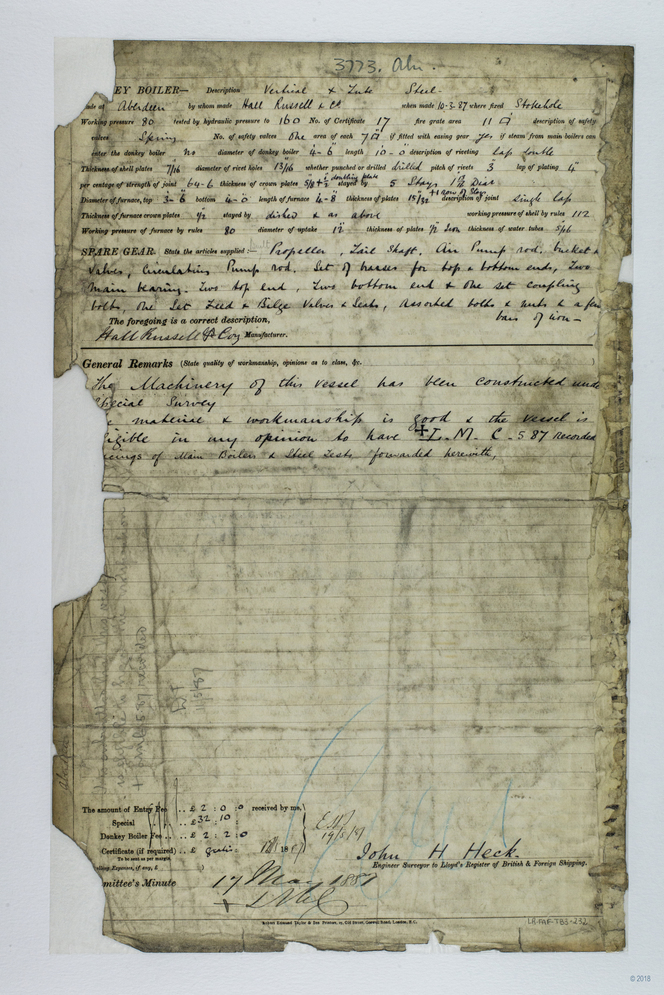 3773. Abn.
EY BOILER— Description Vertical & Tube Steel
made at Aberdeen by whom made Hall Russell & Co when made 10-3-87 where fixed Stokehole
Working pressure 80 tested by hydraulic pressure to 160 No. of Certificate 17 fire grate area 11 □ description of safety
valves Spring No. of safety valves One area of each 7 □ if fitted with easing gear yes if steam from main boilers can
enter the donkey boiler no diameter of donkey boiler 4-6 length 10-0 description of riveting lap double
Thickness of shell plates 7/16 diameter of rivet holes 13/16 whether punched or drilled drilled pitch of rivets 3 lap of plating 4"
per centage of strength of joint 64-6 thickness of crown plates 5/8 + 1/2 doubling plate stayed by 5 Stays 1 7/8 Dia
Diameter of furnace, top 3-6 bottom 4-0 length of furnace 4-8 thickness of plates 15/32 + 1 row of Stays description of joint single lap
Thickness of furnace crown plates 1/2 stayed by dished & as above working pressure of shell by rules 112
Working pressure of furnace by rules 80 diameter of uptake 12 thickness of plates 1/2 Iron thickness of water tubes 5/16
SPARE GEAR. State the articles supplied:— Propeller, Tail Shaft. Air Pump rod. bucket &
Valves, Circulating Pump rod. Set of brasses for top & bottom ends, Two
Main bearing. Two top end, Two bottom end & One set coupling
bolts, One Set Feed & Bilge Valves & Seats, assorted bolts & nuts & a few
bars of iron —
The foregoing is a correct description,
Hall Russell & Coy Manufacturer.
General Remarks (State quality of workmanship, opinions as to class, &c.
The Machinery of this vessel has been constructed under
Special Survey
material & workmanship is good & the vessel is
eligible in my opinion to have + L. M. C - 5 87 recorded
of Main Boilers & Steel Tests forwarded herewith,
11/5/87
The amount of Entry Fee .. £ 2 : 0 : 0 received by me,
Special .. £ 32 : 10 :
Donkey Boiler Fee .. £ 2 : 2 : 0
Certificate (if required) .. £ gratis 18
To be sent as per margin.
(Travelling Expenses, if any, £ )
19/5/87
John H Heck.
Engineer Surveyor to Lloyd's Register of British & Foreign Shipping.
mmittee's Minute 17 May 1887
+ LMC
LR-FAF-TB3-232
© 2018